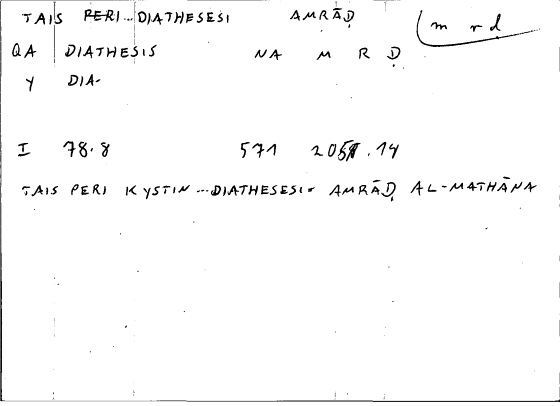 TAIS PERI...DIATHESESI AMRĀḌ m r ḍ
QA DIATHESIS NA M R Ḍ
Y DIA-
I 78.8 571 .14
TAIS PERI KYSTIN...DIATHESESI= AMRĀḌ AL-MATHĀNA